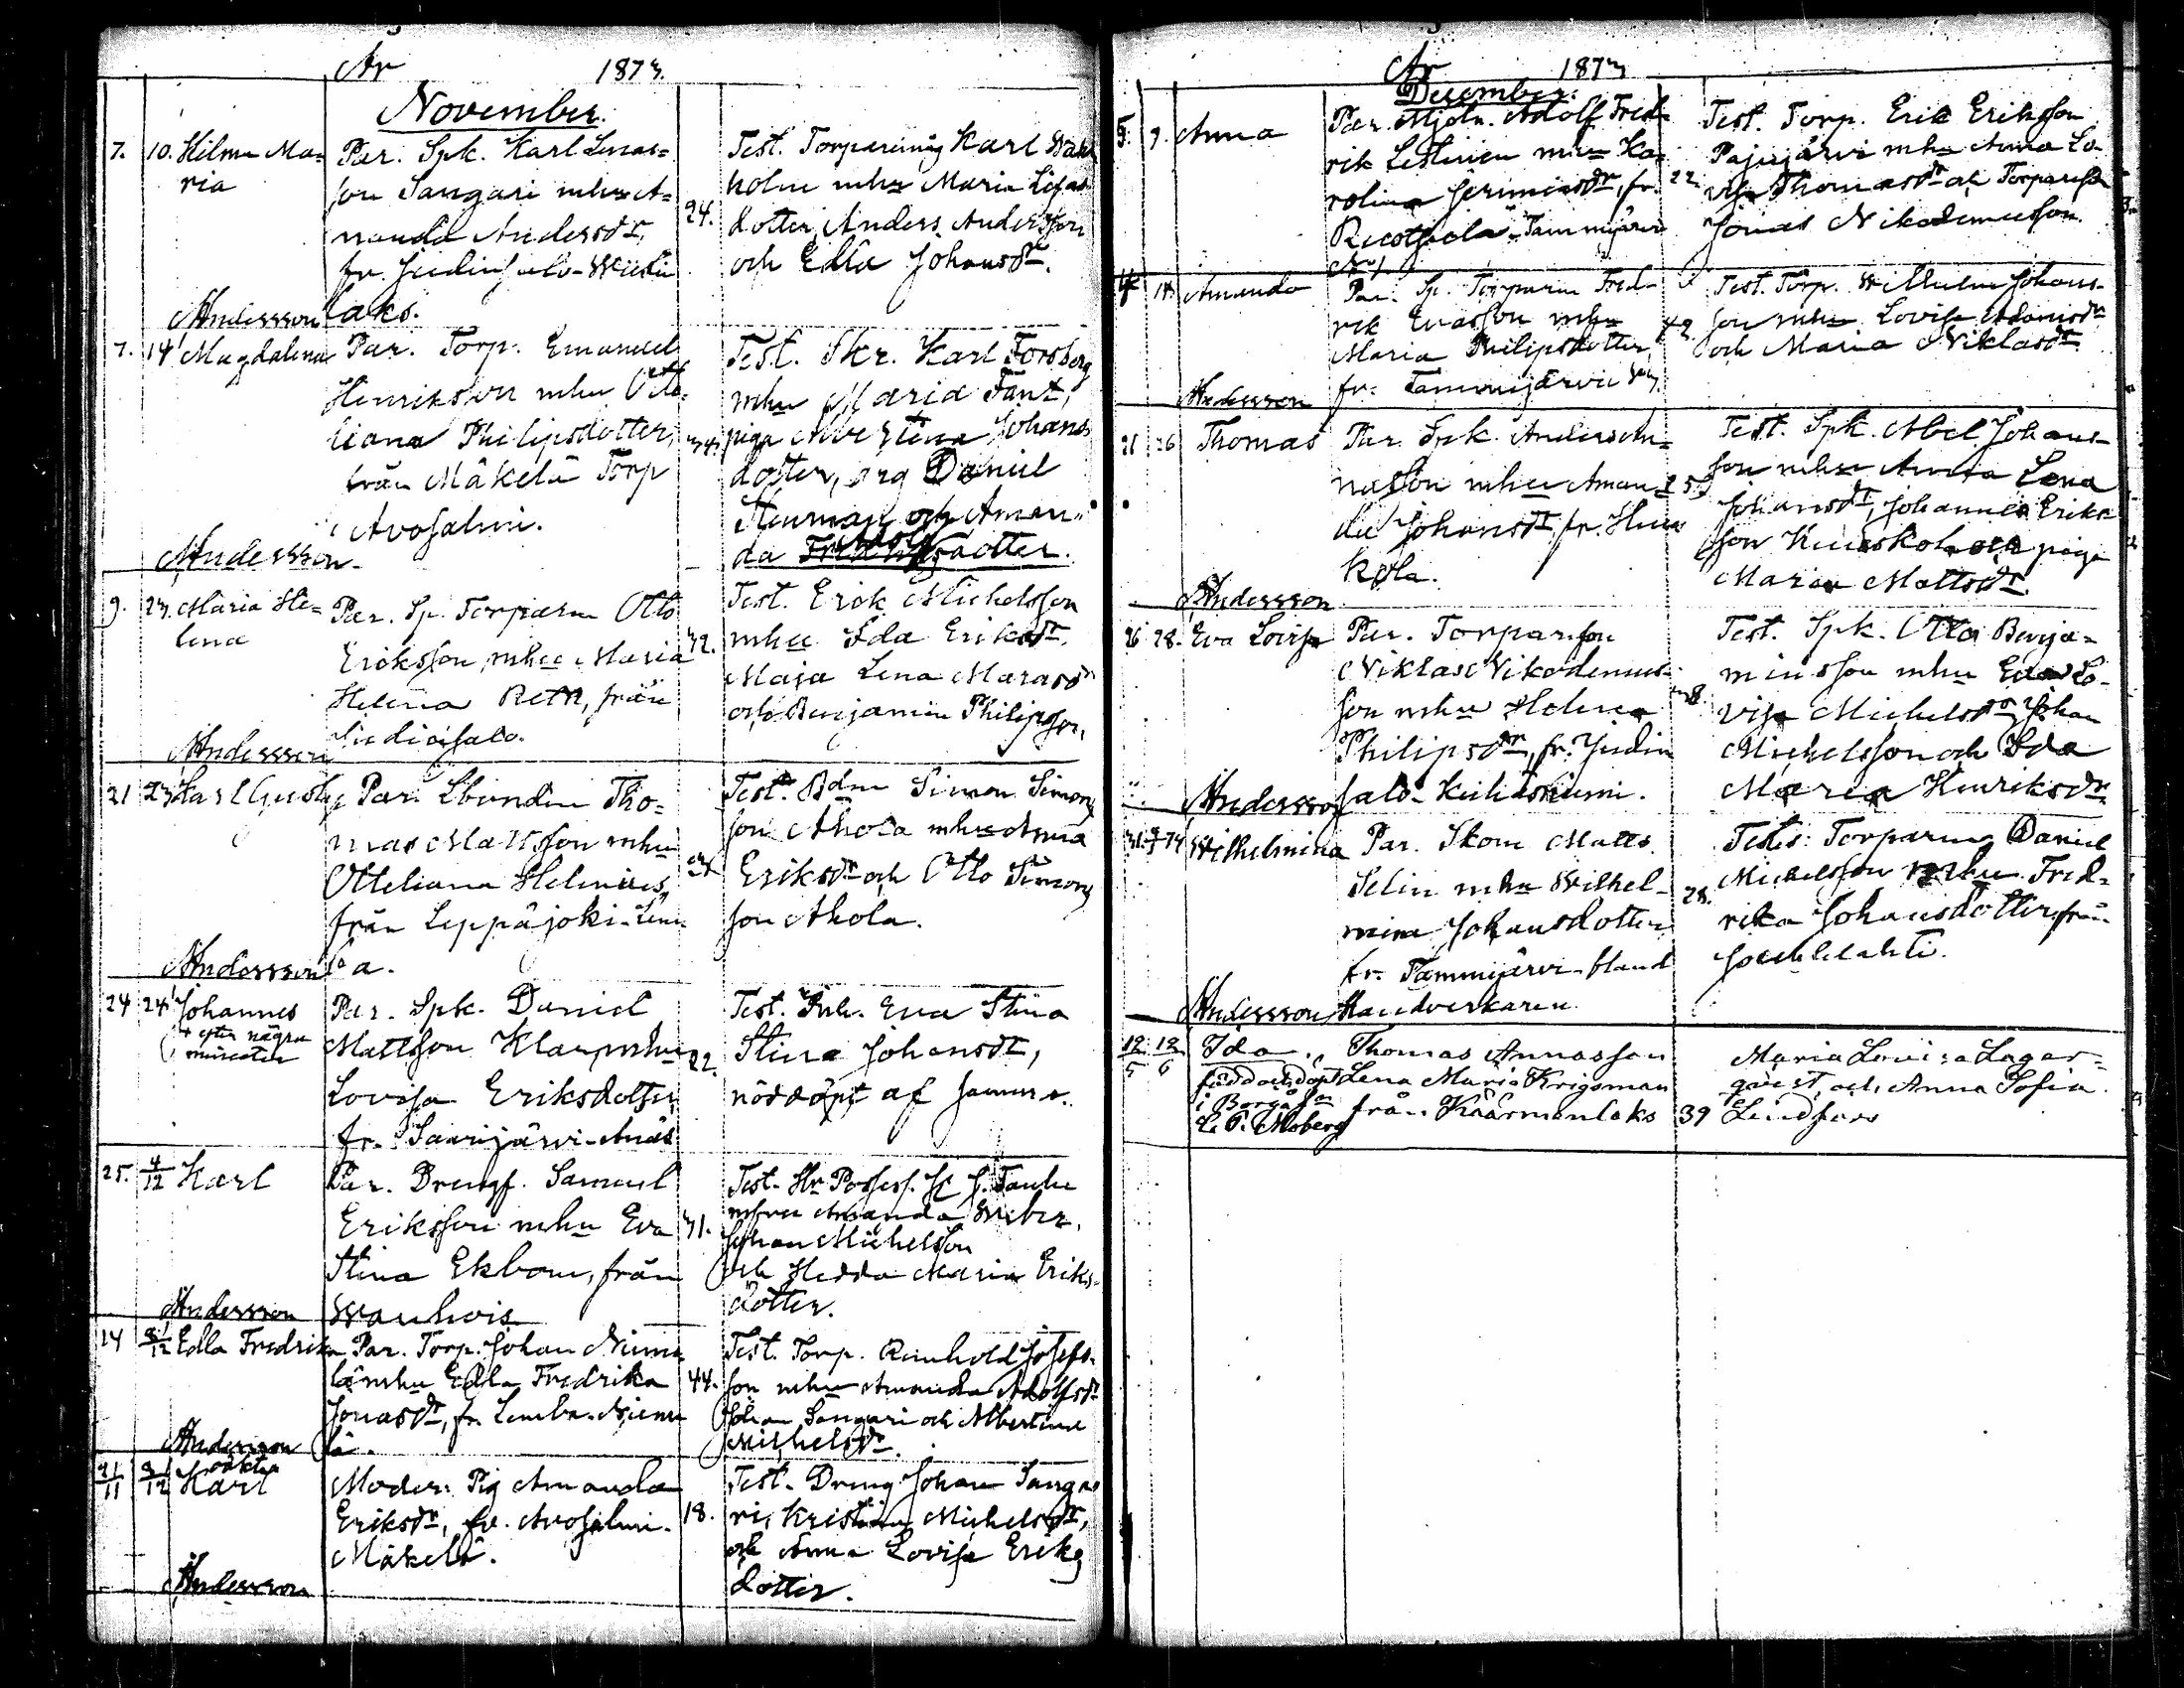 År 1873.
November.
7. 10. Hilma Ma=
ria
Par. Spk. Karl Enas=
son Sangari mhu A=
manda Andersdr,
fr. Judinsalo-Wiidin
laks.
24.
Test. Torpareinhy Karl Wah
holm mhu Maria Lisas
dotter, Anders Andersson
och Edla Johansdr.
Andersson
7. 14 Magdalena
Par. Torp. Emanuel
Henriksson mhu Otte
liana Philipsdotter,
från Mäkelä Torp
Avosalmi.
34.
Test. Skr. Karl Forsberg
mhu Maria Fant,
piga Johans
dotter, drg Daniel
Stenman och Aman
da Adolfsdotter.
Andersson
9. 23. Maria He=
lena
Par. Sp. Torparen Otto
Eriksson, mhu Maria
Helena Reth, från
Judinsalo.
32.
Test. Erik Michelsson
mhu Ida Eriksdr.
Maja Lena Marasdr
och Benjamin Philipsson,
Andersson
21 23 Karl Gustaf
Par. Lbonden Tho=
mas Mattsson mhu
Otteliana Helenius,
från Leppäjoki-Lem
ba.
Test. Bdn Simon Simons
son Ahola mhu Anna
Eriksdr och Otto Simons
son Ahola.
Andersson
24 24 Johannes
† efter några
minuter
Par. Spk. Daniel
Mattsson Klarp mhu
Lovisa Eriksdotter,
fr. Saarijärvi-Anäs
22.
Test. Inh. Eva Stina
Stina Johansdr,
nöddöpt af samma.
25. 4/12 Karl
Par. Drengf. Samuel
Eriksson mhu Eva
Stina Ekbom, från
Wanhois
31.
Test. Hr Possess. H. J. Taube
mfru Amanda Weber,
Johan Michelsson
och Hedda Maria Eriks
dotter.
Andersson
14 8/12 Edla Fredrika
Par. Torp. Johan Niemi
lä mhu Edla Fredrika
Jonasdr, fr. Lemba-Niemi
lä.
44.
Test. Torp. Reinhold Josefs
son mhu Amanda Adolfsdr
Johan Sangari och Albertina
Michelsdr.
Andersson
21/11 8/12 oäkta
Karl
Moder: Pig Amanda
Eriksdr, fr. Avosalmi-
Mäkelä.
18.
Test. Dreng Johan Sanga
ri, Kristina Michelsdr,
och Anna Lovisa Eriks
dotter.
Andersson
År 1873
December.
5. 9. Anna
Par. Mjöln. Adolf Fred-
rik Lethinen mhu Ka-
rolina Jerimiasdr, fr.
Ruotsala-Tammijärvi
22.
Test. Torp. Erik Eriksson
Pajujärvi mhu Anna Lo
visa Thomasdr och Torpareson
Jonas Nikodemusson.
14. Amanda
Par. Sp. Torparen Fred-
rik Evasson mhu
Maria Philipsdotter,
fr. Tammijärvi
42
Test. Torp. Wilhelm Johans-
son mhu Lovisa Adamsdr
och Maria Niklasdr
Andersson
21 26 Thomas
Par. Spk. Anders An-
nasson mhu Aman-
da Johansdr fr. Huus
kola.
25.
Test. Spk. Abel Johans-
son mhu Anna Lena
Johansdr, Johannes Eriks
son Kuuskoh och piga
Maria Mattsdr.
Andersson
26 28. Eva Lovisa
Par. Torpareson
Niklas Nikodemus-
son mhu Helena
Philipsdr, fr. Judin
salo-
Test. Spk. Otto Benja-
minsson mhu Eva Lo-
visa Michelsdr, Johan
Michelsson och Ida
Maria Henriksdr
Andersson
Wilhelmina
Par. Skom Matts
Selin mhu Wilhel-
mina Johansdotter
fr. Tammijärvi-bland
Handverkaren.
28.
Test: Torparen Daniel
Michelsson mhu Fred-
rika Johansdotter från
Andersson
12/5 12/6 Ida.
född och döpt
i Borgå fn
L. P. Moberg
Thomas Annasson
Lena Maria Krigsman
från Käärmenlaks
39
Maria Lovisa Lager=
qvist och Anna Sofia
Lindfors